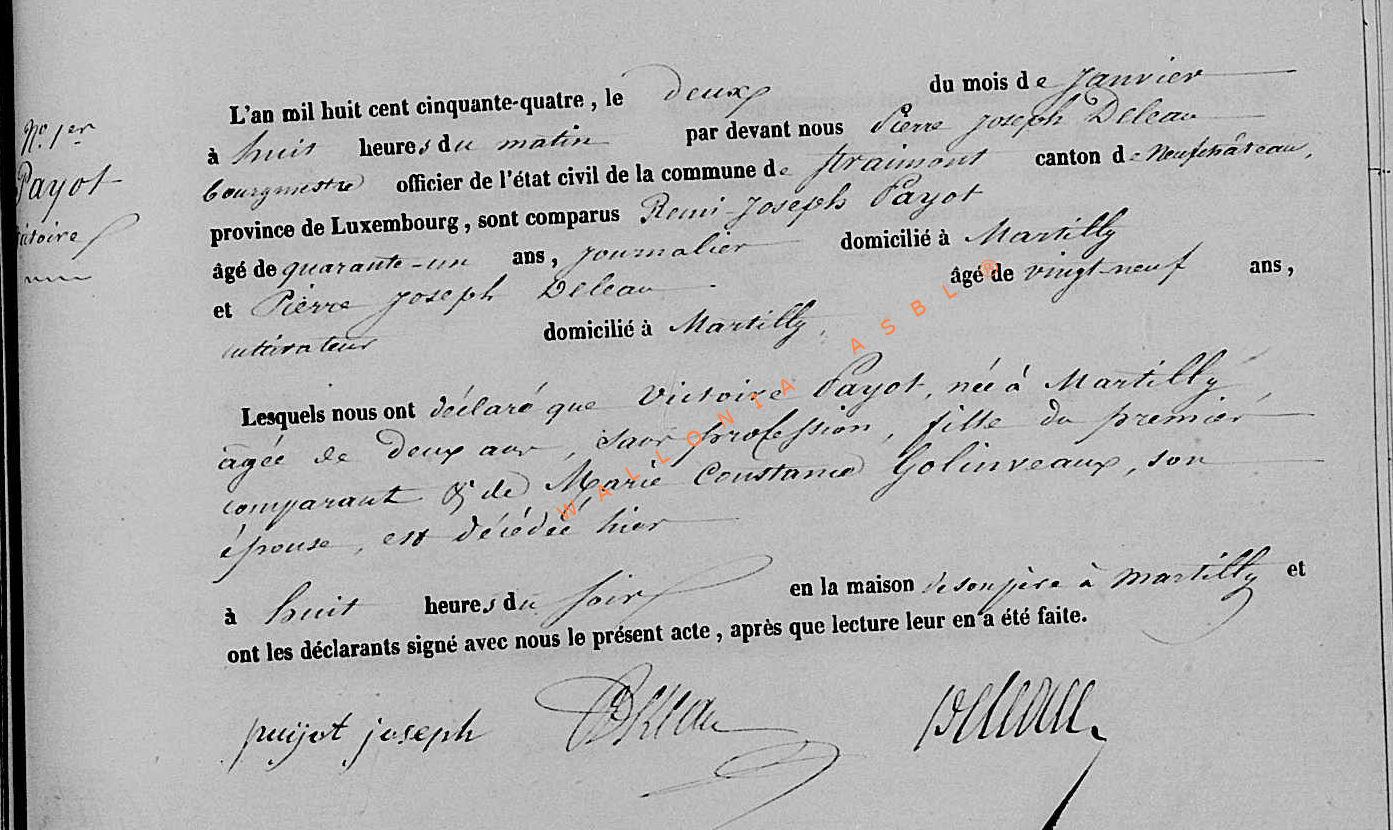 N.º 1er
Payot
Victoire
L'an mil huit cent cinquante-quatre, le deux du mois de Janvier
à huit heures du matin par devant nous Pierre Joseph Deleau
bourgmestre officier de l'état civil de la commune de Straimont canton de Neufchâteau,
province de Luxembourg, sont comparus Remi Joseph Payot
âgé de quarante-un ans, journalier domicilié à Martilly
et Pierre Joseph Deleau âgé de vingt-neuf ans,
cultivateur domicilié à Martilly,
Lesquels nous ont déclaré que Victoire Payot, née à Martilly
agée de deux ans, sans profession, fille du premier
comparant & de Marie Constance Golinveaux, son
épouse, est décédée hier
à huit heures du soir en la maison de son père à Martilly et
ont les déclarants signé avec nous le présent acte, après que lecture leur en a été faite.
joseph Deleau Deleau
WALLONIA ASBL ®